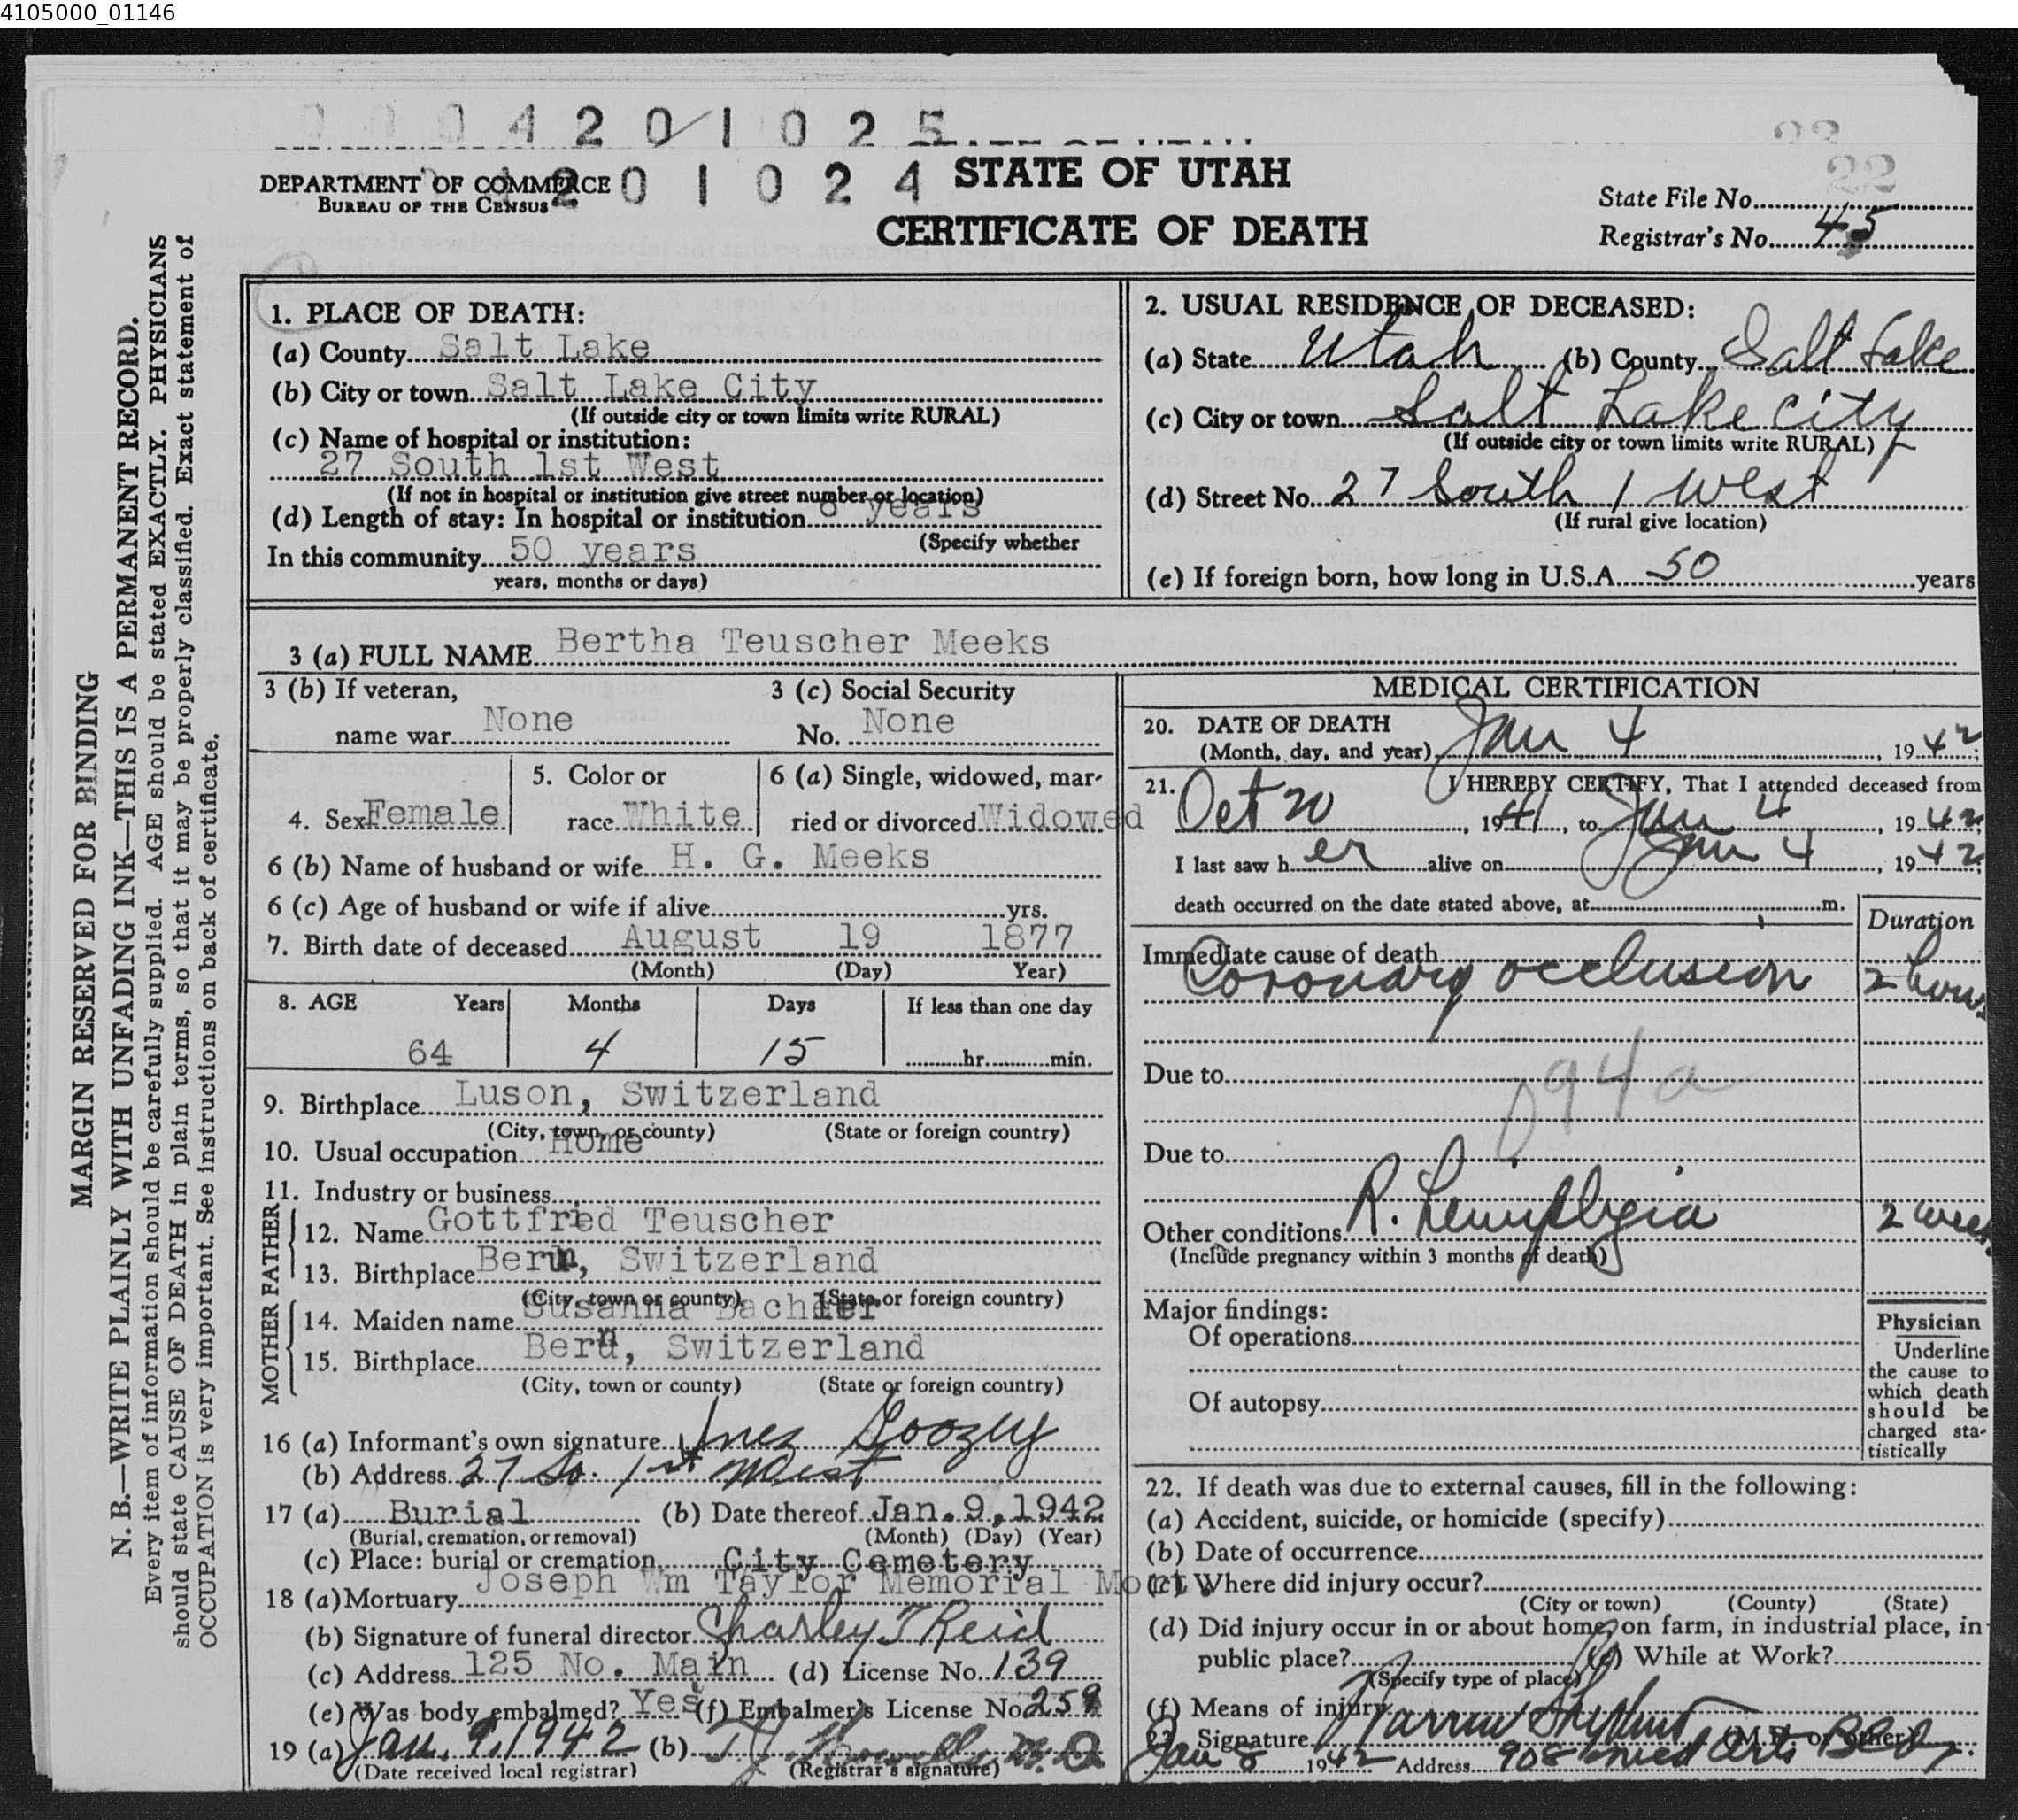 4105000_01146
0 0 0 4 2 0 1 0 2 5
STATE OF UTAH
23
DEPARTMENT OF COMMERCE
BUREAU OF THE CENSUS
2 0 1 0 2 4
STATE OF UTAH
CERTIFICATE OF DEATH
22
State File No.
Registrar's No. 45
MARGIN RESERVED FOR BINDING
N. B.—WRITE PLAINLY WITH UNFADING INK—THIS IS A PERMANENT RECORD.
Every item of information should be carefully supplied. AGE should be stated EXACTLY. PHYSICIANS
should state CAUSE OF DEATH in plain terms, so that it may be properly classified. Exact statement of
OCCUPATION is very important. See instructions on back of certificate.
1. PLACE OF DEATH:
(a) County Salt Lake
(b) City or town Salt Lake City
(If outside city or town limits write RURAL)
(c) Name of hospital or institution:
27 South 1st West
(If not in hospital or institution give street number or location)
(d) Length of stay: In hospital or institution years
(Specify whether
In this community 50 years
years, months or days)
2. USUAL RESIDENCE OF DECEASED:
(a) State Utah (b) County Salt Lake
(c) City or town Salt Lake City
(If outside city or town limits write RURAL)
(d) Street No. 27 South 1 West
(If rural give location)
(e) If foreign born, how long in U.S.A. 50 years
3 (a) FULL NAME Bertha Teuscher Meeks
3 (b) If veteran,
name war None
3 (c) Social Security
No. None
4. Sex Female
5. Color or
race White
6 (a) Single, widowed, mar-
ried or divorced Widowed
6 (b) Name of husband or wife H. G. Meeks
6 (c) Age of husband or wife if alive yrs.
7. Birth date of deceased August 19 1877
(Month) (Day) Year)
8. AGE Years Months Days If less than one day
64 4 15 hr. min.
9. Birthplace Luson, Switzerland
(City, town, or county) (State or foreign country)
10. Usual occupation Home
11. Industry or business
FATHER
12. Name Gottfried Teuscher
13. Birthplace Bern, Switzerland
(City, town or county) (State or foreign country)
MOTHER
14. Maiden name Susanna Bachler
15. Birthplace Bern, Switzerland
(City, town or county) (State or foreign country)
16 (a) Informant's own signature Inez Goozey
(b) Address 27 So. 1st West
17 (a) Burial (b) Date thereof Jan. 9, 1942
(Burial, cremation, or removal) (Month) (Day) (Year)
(c) Place: burial or cremation City Cemetery
18 (a) Mortuary Joseph Wm Taylor Memorial Mort.
(b) Signature of funeral director Charley T Reid
(c) Address 125 No. Main (d) License No. 139
(e) Was body embalmed? Yes (f) Embalmer's License No. 259
19 (a) Jan. 9, 1942 (b) T J Howells M.D.
(Date received local registrar) (Registrar's signature)
MEDICAL CERTIFICATION
20. DATE OF DEATH
(Month, day, and year) Jan 4, 1942;
21. I HEREBY CERTIFY, That I attended deceased from
Oct 20, 1941, to Jan 4, 1942
I last saw her alive on Jan 4, 1942;
death occurred on the date stated above, at m.
Duration
Immediate cause of death
Coronary occlusion 2 hours
Due to
094a
Due to
Other conditions R. Hemiplegia 2 weeks
(Include pregnancy within 3 months of death)
Major findings:
Of operations
Of autopsy
Physician
Underline
the cause to
which death
should be
charged sta-
tistically
22. If death was due to external causes, fill in the following:
(a) Accident, suicide, or homicide (specify)
(b) Date of occurrence
(c) Where did injury occur?
(City or town) (County) (State)
(d) Did injury occur in or about home, on farm, in industrial place, in
public place? (e) While at Work?
(Specify type of place)
(f) Means of injury
23. Signature Warren Shepherd (M.D. or other)
Jan 8 1942 Address 908 Med Arts Bldg.